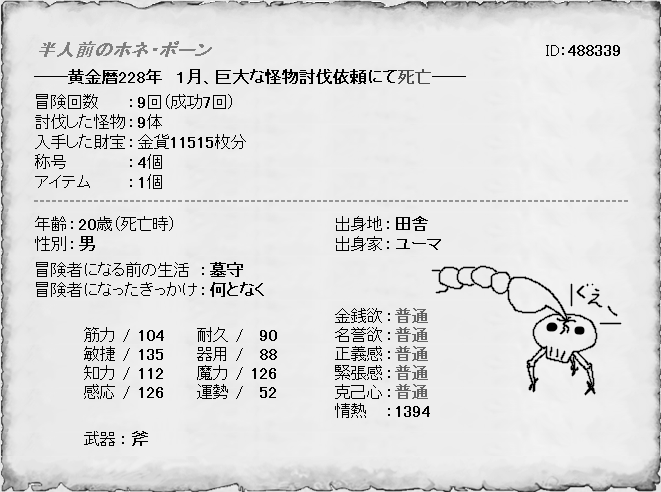 半人前のホネ・ボーン
ID:488339
――黄金暦228年　1月、巨大な怪物討伐依頼にて死亡――
冒険回数　：9回(成功7回)
討伐した怪物：9体
入手した財宝：金貨11515枚分
称号　：4個
アイテム　：1個
年齢：20歳(死亡時)
出身地：田舎
性別：男
出身家：ユーマ
冒険者になる前の生活　：墓守
冒険者になったきっかけ：何となく
金銭欲：普通
筋力 / 104　耐久 / 90
名誉欲：普通
敏捷 / 135　器用 / 88
正義感：普通
知力 / 112　魔力 / 126
緊張感：普通
感応 / 126　運勢 / 52
克己心：普通
情熱　：1394
武器：斧
ぐえ、